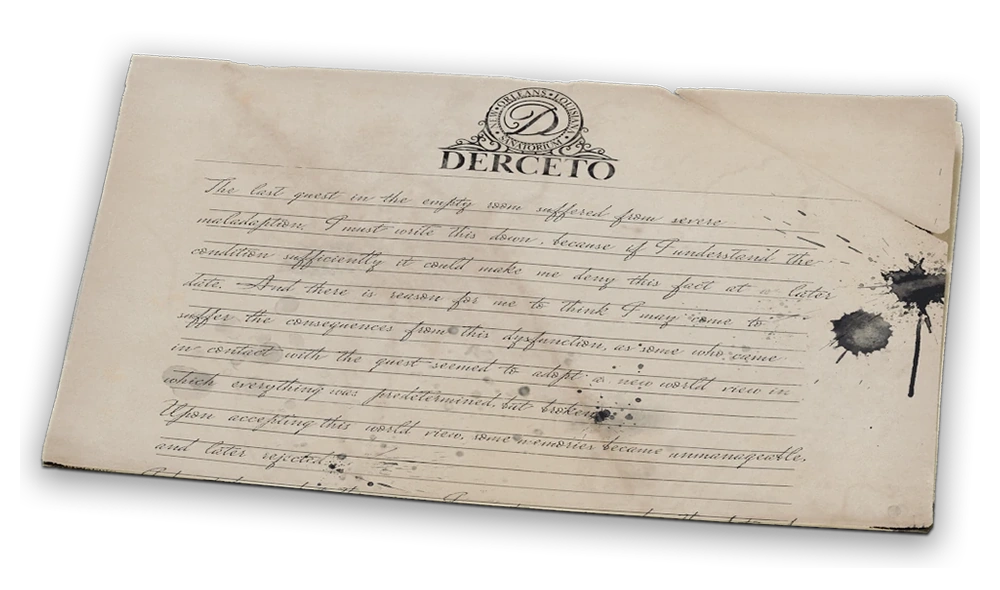 NEW ORLEANS • LOUISIANA
SANATORIUM
D
DERCETO
The last guest in the empty room suffered from severe
maladaption. I must write this down, because if I understand the
condition sufficiently it could make me deny this fact at a later
date. And there is reason for me to think I may come to
suffer the consequences from this dysfunction, as some who came
in contact with the guest seemed to adopt a new world view in
which everything was predetermined, but broken.
Upon accepting this world view, some memories became unmanageable,
and later rejected.